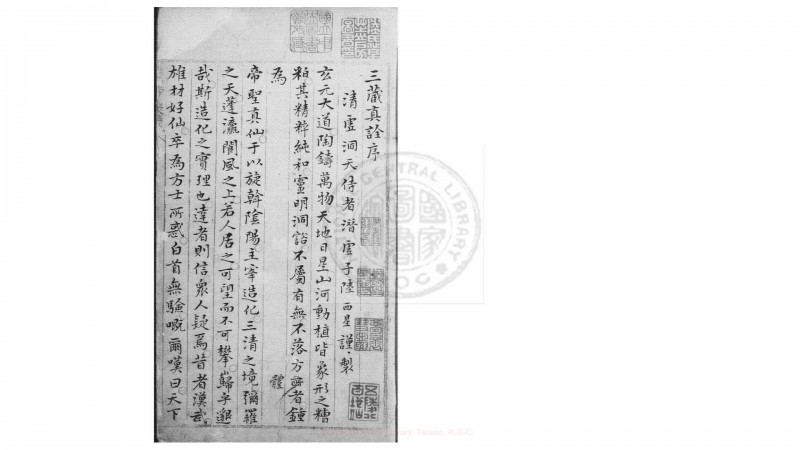 三藏真詮序
清虛洞天侍者潛虛子陸西星謹製
玄元大道陶鑄萬物天地日星山河動植皆象形之糟
粕其精粹純和靈明洞谿不屬有無不落方體者鍾
為
帝聖真仙于以旋斡陰陽主宰造化三清之境彌羅
之天蓬瀛閬風之上若人居之可望而不可攀歸乎邈
哉斯造化之實理也達者則信眾人疑焉昔者漢武
雄材好仙卒為方士所惑白首無驗嘅爾嘆曰天下
CENTRAL LIBRARY
國家